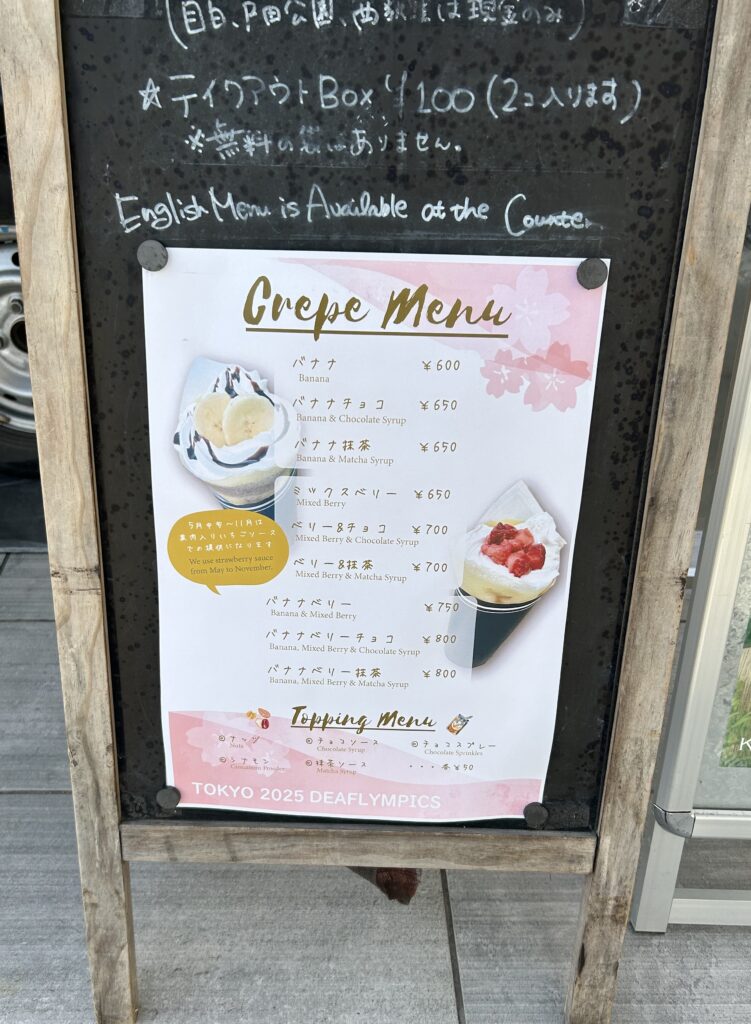 (目白、戸田公園、西荻窪は現金のみ)
☆テイクアウトBox ¥100(2コ入ります)
※無料の袋はありません。
English Menu is Available at the Counter
Crepe Menu
バナナ ¥600
Banana
バナナチョコ ¥650
Banana & Chocolate Syrup
バナナ抹茶 ¥650
Banana & Matcha Syrup
ミックスベリー ¥650
Mixed Berry
ベリー&チョコ ¥700
Mixed Berry & Chocolate Syrup
ベリー&抹茶 ¥700
Mixed Berry & Matcha Syrup
バナナベリー ¥750
Banana & Mixed Berry
バナナベリーチョコ ¥800
Banana, Mixed Berry & Chocolate Syrup
バナナベリー抹茶 ¥800
Banana, Mixed Berry & Matcha Syrup
5月中旬〜11月は
果肉入りいちごソース
での提供になります
We use strawberry sauce
from May to November.
Topping Menu
◎ナッツ ◎チョコソース ◎チョコスプレー
Nuts Chocolate Syrup Chocolate Sprinkles
◎シナモン ◎抹茶ソース ・・・各¥50
Cinnamon Powder Matcha Syrup
TOKYO 2025 DEAFLYMPICS
K